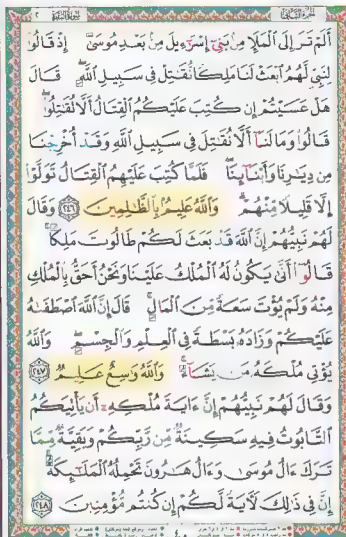 أَلَمْ تَرَ إِلَى ٱلْمَلَإِ مِنۢ بَنِىٓ إِسْرَٰٓءِيلَ مِنۢ بَعْدِ مُوسَىٰٓ إِذْ قَالُوا۟
لِنَبِىٍّ لَّهُمُ ٱبْعَثْ لَنَا مَلِكًا نُّقَٰتِلْ فِى سَبِيلِ ٱللَّهِ ۖ قَالَ
هَلْ عَسَيْتُمْ إِن كُتِبَ عَلَيْكُمُ ٱلْقِتَالُ أَلَّا تُقَٰتِلُوا۟ ۖ
قَالُوا۟ وَمَا لَنَآ أَلَّا نُقَٰتِلَ فِى سَبِيلِ ٱللَّهِ وَقَدْ أُخْرِجْنَا
مِن دِيَٰرِنَا وَأَبْنَآئِنَا ۖ فَلَمَّا كُتِبَ عَلَيْهِمُ ٱلْقِتَالُ تَوَلَّوْا۟
إِلَّا قَلِيلًا مِّنْهُمْ ۗ وَٱللَّهُ عَلِيمٌۢ بِٱلظَّٰلِمِينَ ٢٤٦ وَقَالَ
لَهُمْ نَبِيُّهُمْ إِنَّ ٱللَّهَ قَدْ بَعَثَ لَكُمْ طَالُوتَ مَلِكًا ۚ
قَالُوٓا۟ أَنَّىٰ يَكُونُ لَهُ ٱلْمُلْكُ عَلَيْنَا وَنَحْنُ أَحَقُّ بِٱلْمُلْكِ
مِنْهُ وَلَمْ يُؤْتَ سَعَةً مِّنَ ٱلْمَالِ ۚ قَالَ إِنَّ ٱللَّهَ ٱصْطَفَىٰهُ
عَلَيْكُمْ وَزَادَهُۥ بَسْطَةً فِى ٱلْعِلْمِ وَٱلْجِسْمِ ۖ وَٱللَّهُ
يُؤْتِى مُلْكَهُۥ مَن يَشَآءُ ۚ وَٱللَّهُ وَٰسِعٌ عَلِيمٌ ٢٤٧
وَقَالَ لَهُمْ نَبِيُّهُمْ إِنَّ ءَايَةَ مُلْكِهِۦٓ أَن يَأْتِيَكُمُ
ٱلتَّابُوتُ فِيهِ سَكِينَةٌ مِّن رَّبِّكُمْ وَبَقِيَّةٌ مِّمَّا
تَرَكَ ءَالُ مُوسَىٰ وَءَالُ هَٰرُونَ تَحْمِلُهُ ٱلْمَلَٰٓئِكَةُ ۚ
إِنَّ فِى ذَٰلِكَ لَءَايَةً لَّكُمْ إِن كُنتُم مُّؤْمِنِينَ ٢٤٨
٤٠